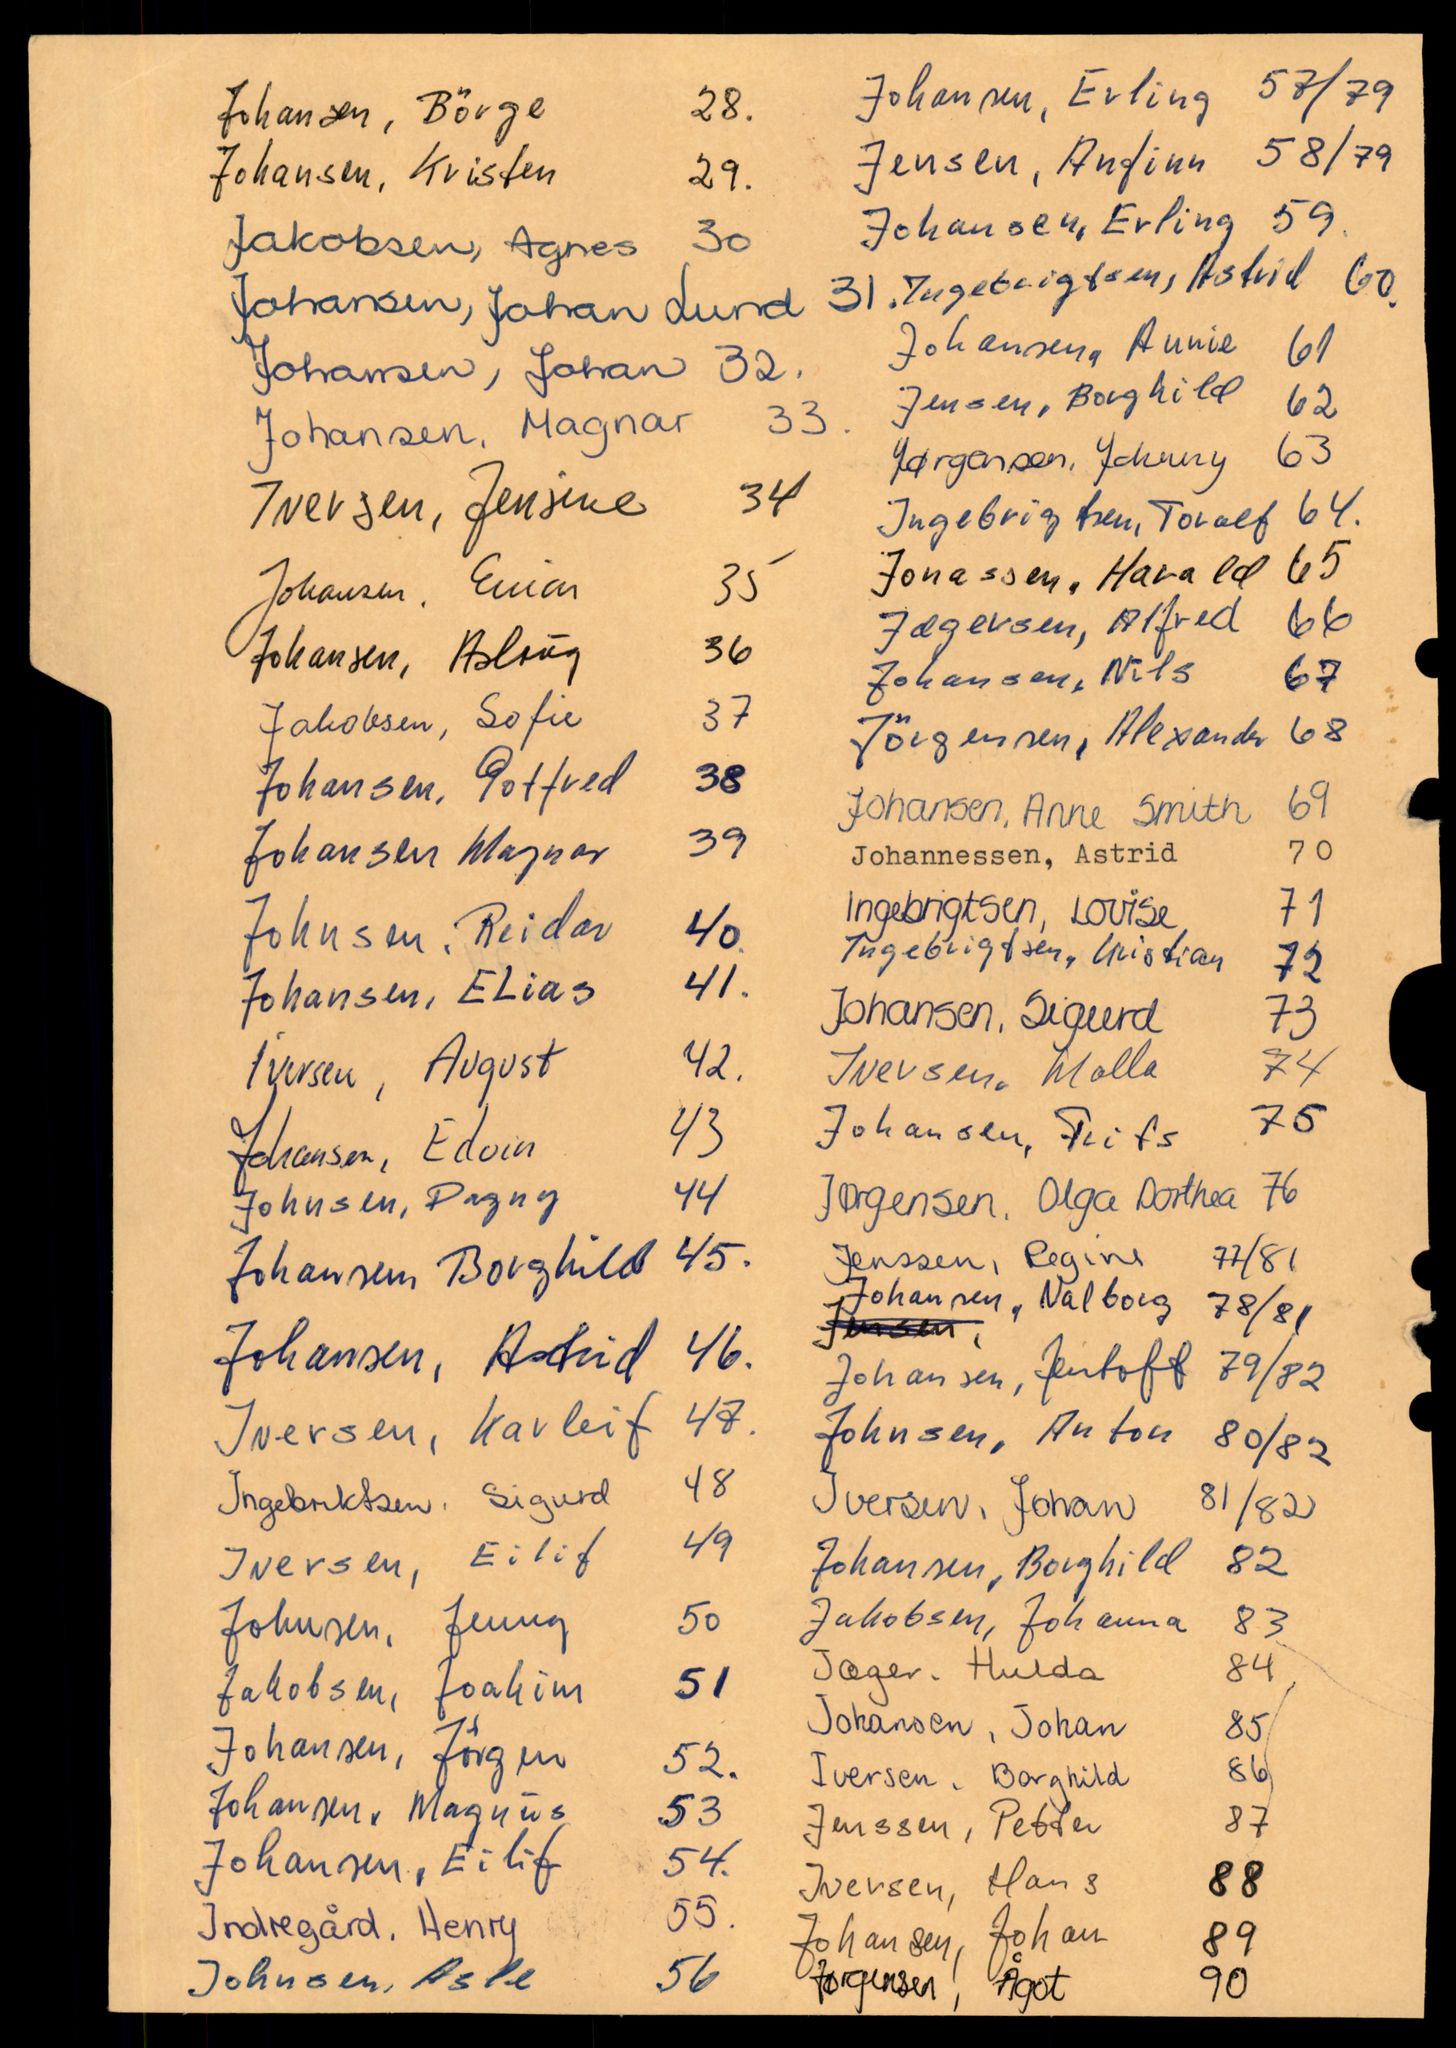 Johansen, Börge 28.
Johansen, Kristen 29.
Jakobsen, Agnes 30
Johansen, Johan Lund 31.
Johansen, Johan 32.
Johansen, Magnar 33.
Iversen, Jensine 34
Johansen, 35
Johansen, Aslaug 36
Jakobsen, Sofie 37
Johansen, Gotfred 38
Johansen Magnar 39
Johnsen, Reidar 40.
Johansen, ELias 41.
Iversen, August 42.
Johansen, Edvin 43
Johnsen, Dagny 44
Johansen, Borghild 45.
Johansen, Astrid 46.
Iversen, Karleif 47.
Ingebriktsen, Sigurd 48
Iversen, Eilif 49
Johnsen, Jenny 50
Jakobsen, Joakim 51
Johansen, Jörgen 52.
Johansen, Magnus 53
Johansen, Eilif 54.
Indregård, Henry 55.
Johnsen, Asle 56
Johansen, Erling 57/79
Jensen, Anfinn 58/79
Johansen, Erling 59.
Ingebrigtsen, Astrid 60.
Johansen, Annie 61
Jensen, Borghild 62
Jørgensen, Johnny 63
Ingebrigtsen, Toralf 64.
Jonassen, Harald 65
Jægersen, Alfred 66
Johansen, Nils 67
Jörgensen, Alexander 68
Johansen, Anne Smith 69
Johannessen, Astrid 70
Ingebrigtsen, Lovise 71
Ingebrigtsen, Kristian 72
Johansen, Sigurd 73
Iversen, Malla 74
Johansen, Frits 75
Jørgensen, Olga Dorthea 76
Jenssen, Regine 77/81
Johansen, Valborg 78/81
Jensen,
Johansen, Jentoft 79/82
Johnsen, Anton 80/82
Iversen, Johan 81/82
Johansen, Borghild 82
Jakobsen, Johanna 83
Jæger. Hulda 84
Johansen, Johan 85
Iversen, Borghild 86
Jenssen, Petter 87
Iversen, Hans 88
Johansen, Johan 89
Jørgensen, Ågot 90